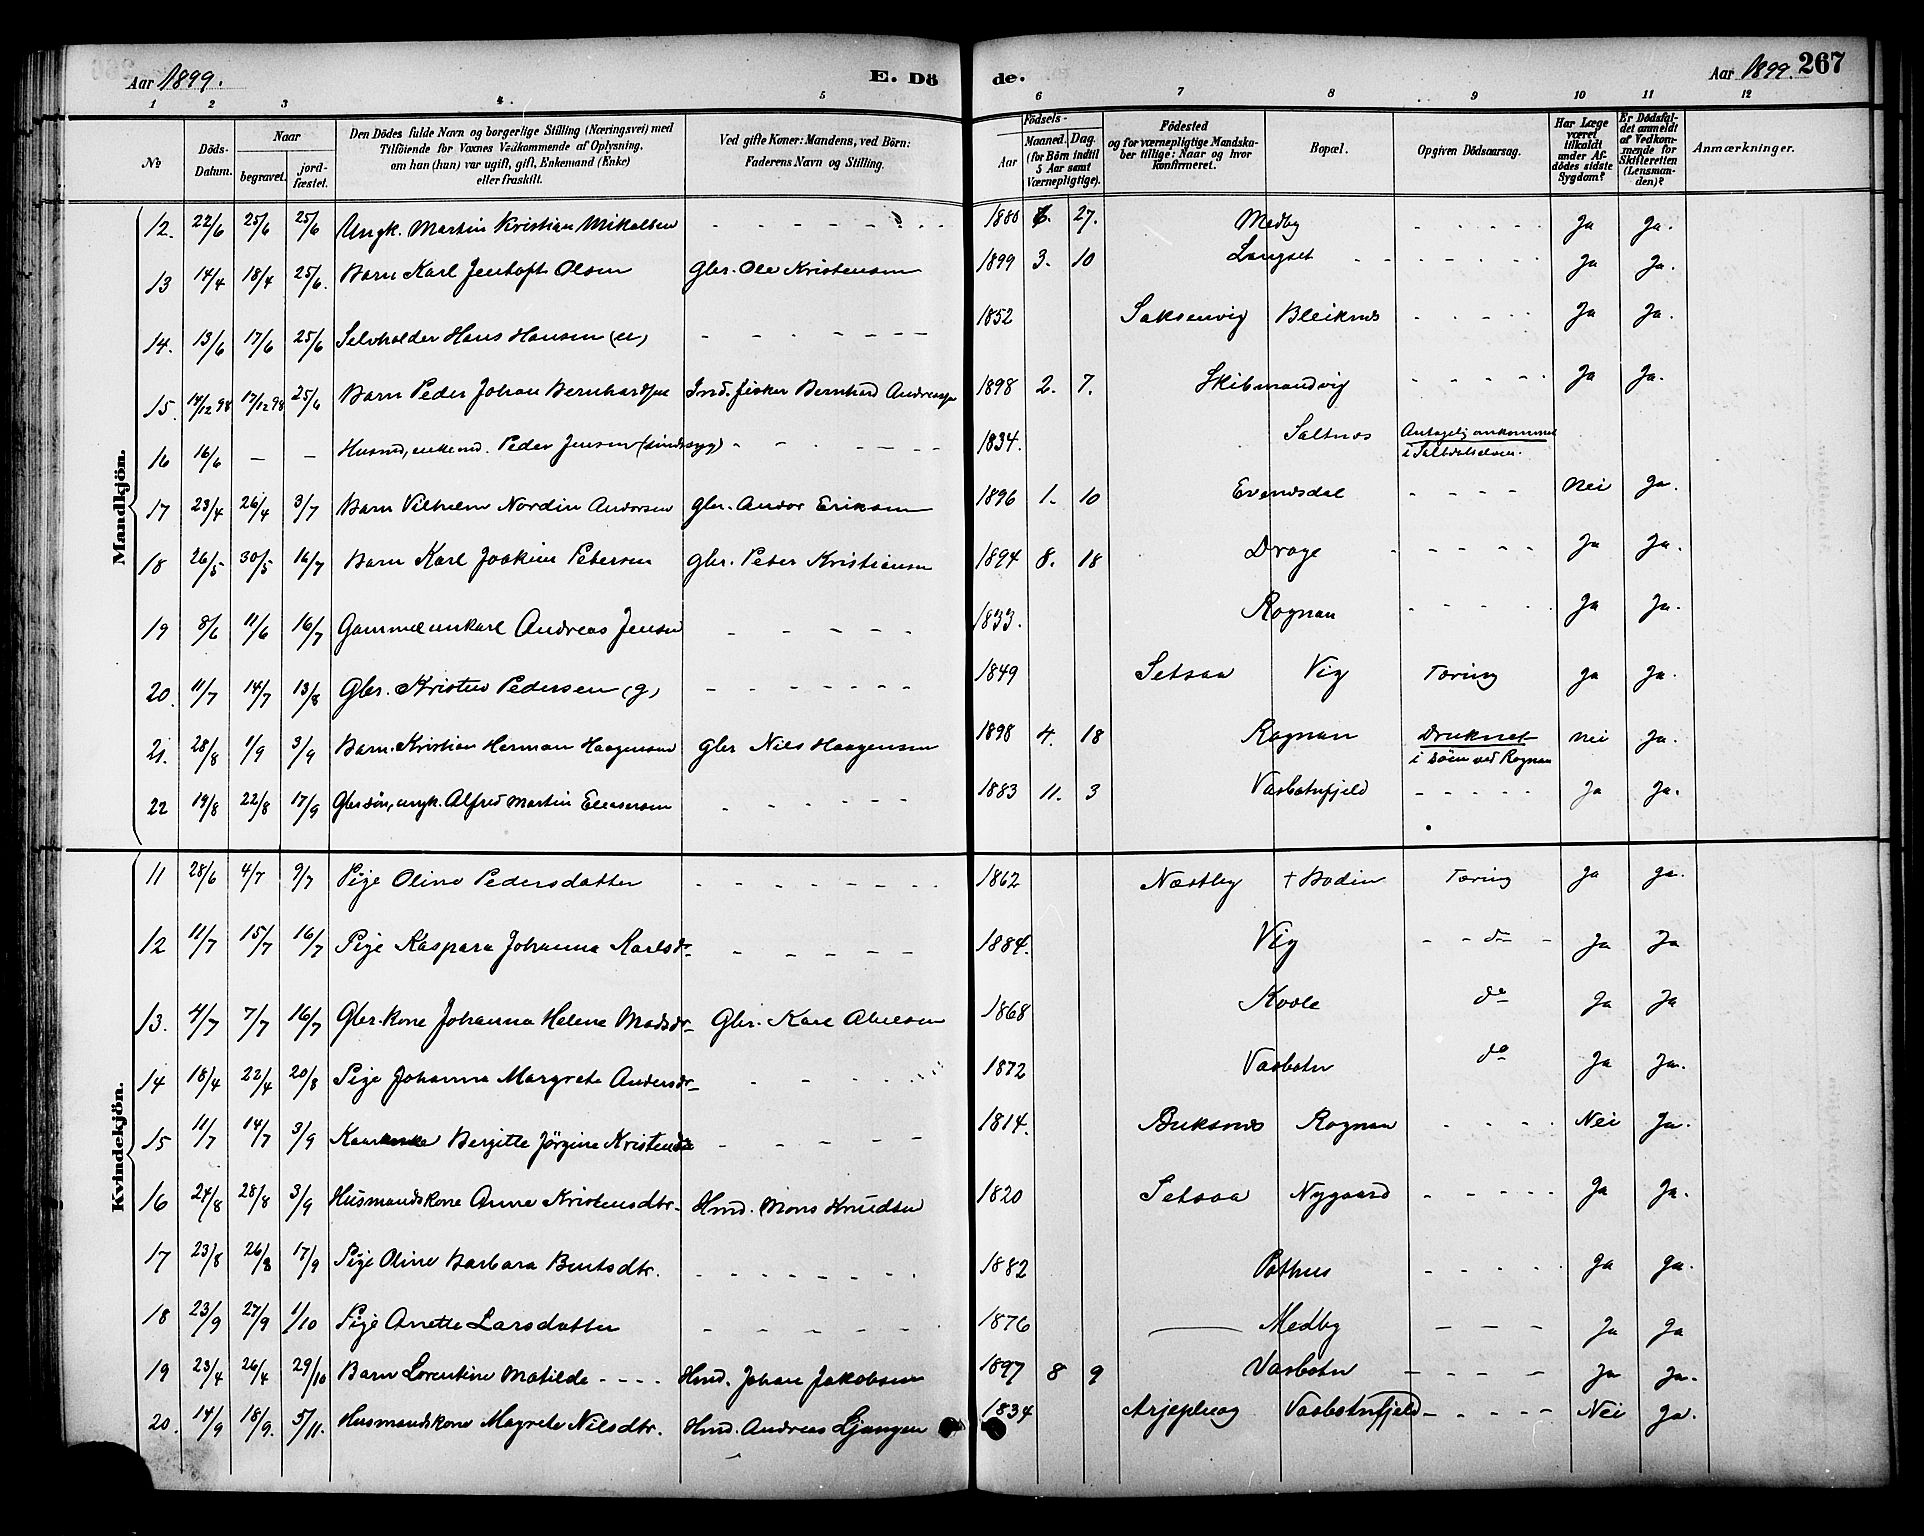 Aar 1899. E. Dö de. Aar 1899. 267
1 2 3 4. 5 6 7 8 9 10 11 12
No Döds-Datum. Naar begravet. jordfæstet. Den Dödes fulde Navn og borgerlige Stilling (Næringsvei) med Tilföiende for Voxnes Vedkommende af Oplysning, om han (hun) var ugift, gift, Enkemand (Enke) eller fraskilt. Ved gifte Koner: Mandens, ved Börn: Faderens Navn og Stilling. Födsels- Aar Maaned. Dag. (for Börn indtil 5 Aar samt Værnepligtige). Födested og for værnepligtige Mandskaber tillige: Naar og hvor konfirmeret. Bopæl. Opgiven Dödsaarsag. Har Læge været tilkaldt under Afdödes sidste Sygdom? Er Dödsfaldet anmeldt af Vedkommende for Skifteretten (Lensmanden)? Anmærkninger.
Mandkjön.
12. 22/6 25/6 25/6 Ungk. Martin Kristian Mikalsen - - - - - 1880 6. 27. Medby - - - - - Ja Ja.
13 14/4 18/4 25/6. Barn Karl Jentoft Olsen Gbr. Ole Kristensen 1899 3. 10 Langset - - - - - Ja Ja.
14. 13/6 17/6 25/6 Selvholder Hans Hansen (u) - - - - - 1852 Saksenvig Bleiknes - - - - - Ja Ja.
15. 14/12 98 17/12 98 25/6 Barn Peder Johan Bernhardsen Ind. fisker Bernhard Andreassen 1898 2. 7. Skibmandvig - - - - - Ja Ja.
16 16/6 - - Husmd, enkemd. Peder Jensen (sindssyg) - - - - - 1834. Saltnes Antagelig omkommet
i Saltdalselven.
17 23/4 26/4 3/7 Barn Vilhelm Nordin Andorsen Gbr. Andor Eriksen 1896 1. 10 Evensdal - - - - Nei Ja.
18 26/5 30/5 16/7 Barn Karl Joakim Petersen Gbr. Peter Kristiansen 1894 8. 18 Drage - - - - - Ja Ja.
19 8/6 11/6 16/7 Gammel unkarl Andreas Jensen - - - - - 1833. Rognan - - - - - Ja Ja.
20. 11/7 14/7 13/8 Gbr. Kristen Pedersen (g) - - - - - - 1849 Setsaa Vig Tæring Ja Ja.
21. 28/8 1/9 3/9 Barn Kristian Herman Haagensen Gbr Nils Haagensen 1898 4. 18 Rognan Druknet Nei Ja.
i söen ved Rognan
22 19/8 22/8 17/9 Gbr.sön, ungk. Alfred Martin Eleasersen - - - - - 1883 11. 3 Vasbotnfjeld - - - - - Ja Ja.
Kvindekjön.
11 28/6 4/7 9/7 Pige Oline Pedersdatter - - - - - - - 1862 Næstby + Bodin Tæring Ja Ja.
12 11/7 15/7 16/7 Pige Kaspara Johanna Karlsdr - - - - - 1884. Vig - - do - Ja Ja
13. 4/7 7/7 16/7 Gbr.kone Johanna Helene Madsdr Gbr. Karl Abelsen 1868 Kvæle do Ja Ja
14 18/4 22/4 20/8 Pige Johanna Margrete Andersdr - - - - - 1872 Vasbotn do Ja Ja.
15 11/7 14/7 3/9 Kaarenke Bergitte Jörgine Kristensdr - - - - - 1814. Buksnes Rognan - - - - Nei Ja.
16 24/8 28/8 3/9 Husmandskone Anne Kristensdtr. Hmd. Mons Knudsen 1820 Setsaa Nygaard - - - - - Ja Ja.
17 23/8 26/8 17/9 Pige Oline Barbara Bentsdtr. - - - - - - - 1882 Pothus - - - - - Ja Ja.
18 23/9 27/9 1/10 Pige Anette Larsdatter - - - - - - 1876 — Medby - - - - Ja Ja
19 23/4 26/4 29/10 Barn Lorentine Matilde - - - - Hmd. Johan Jakobsen 1897 8 9 Vasbotn - - - - Ja Ja.
20. 14/9 18/9. 5/11. Husmandskone Magrete Nilsdtr. Hmd. Andreas Ljangen 1834 Arjepluog Vasbotnfjeld - - - - - Nei Ja.